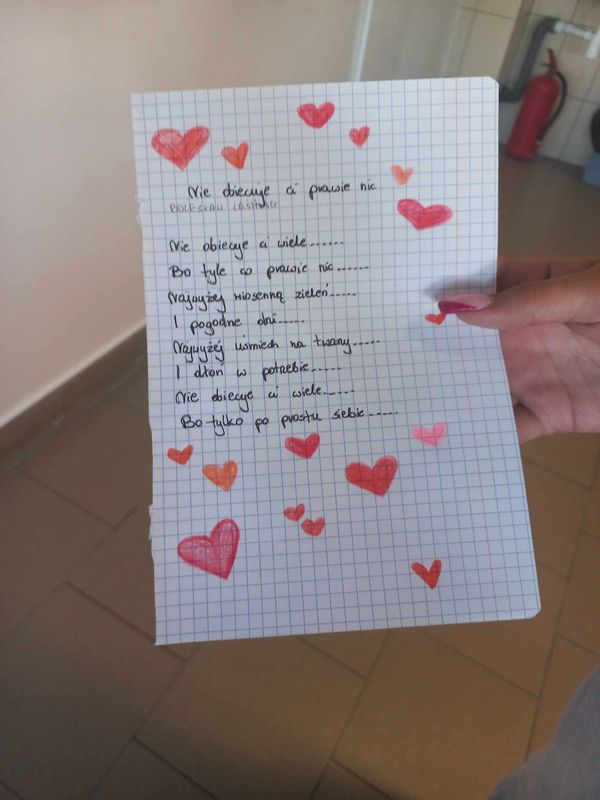 Nie obiecuje ci prawie nic
BOLESŁAW LEŚMIAN
Nie obiecuje ci wiele......
Bo tyle co prawie nic......
Najwyżej wiosenną zieleń.....
I pogodne dni.....
Najwyżej uśmiech na twarzy.....
I dłoń w potrzebie......
Nie obiecuje ci wiele.....
Bo tylko po prostu siebie.....